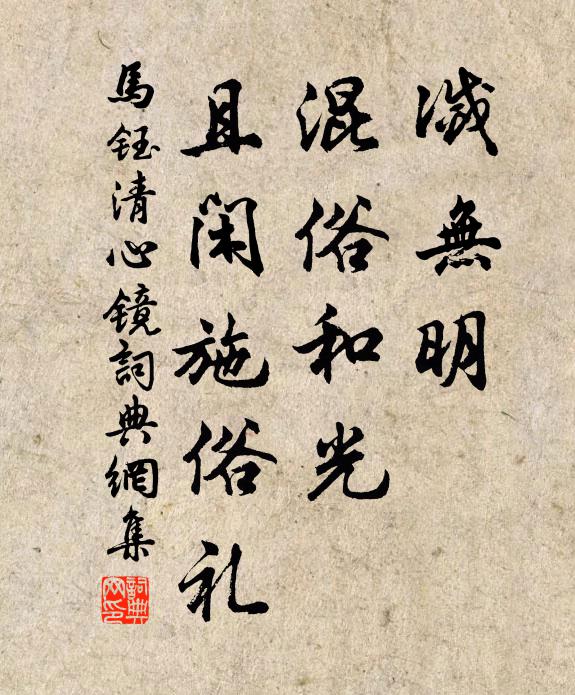 滅無明
混俗和光
且閑施俗礼
馬鈺清心鏡詞典網集
詞典
网印